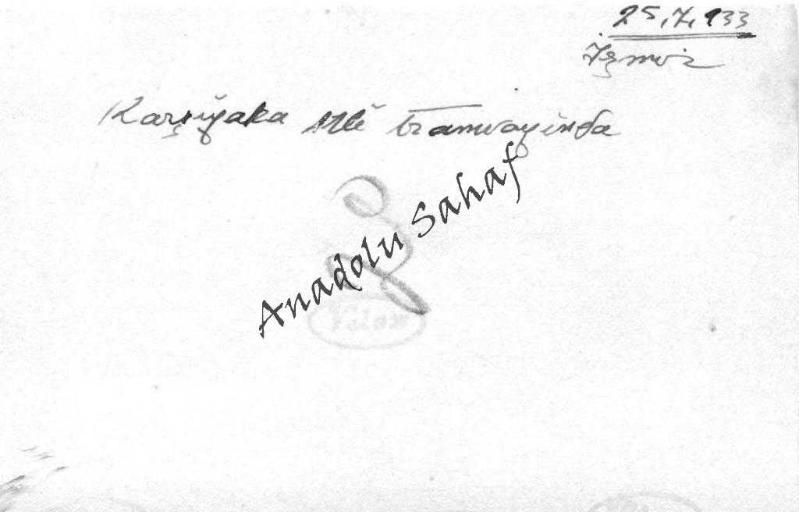 25.7.933
İzmir
Karşıyaka Atlı tramvayında
Anadolu Sahaf
Velox